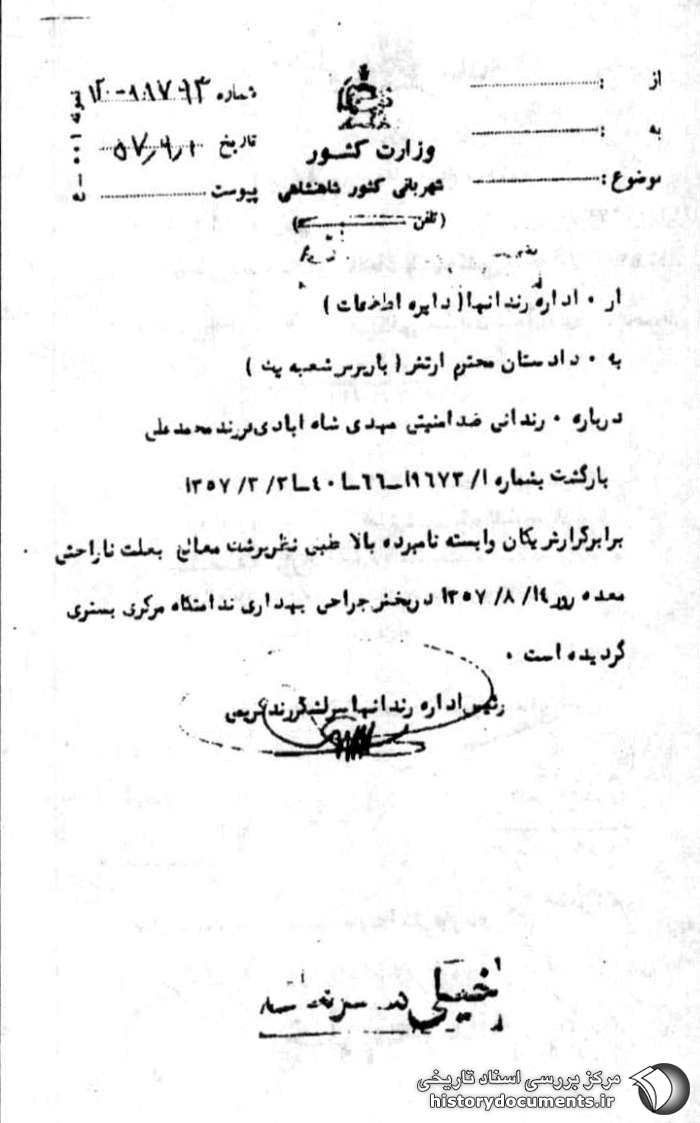 از :
به :
موضوع :
وزارت کشور
شهربانی کشور شاهنشاهی
(تلفن )
شماره
تاریخ
پیوست
از ۰ اداره زندانها ( دایره اطلاعات )
به ۰ دادستان محترم ارتش ( بازپرس شعبه )
درباره ۰ زندانی ضدامنیتی مهدی شاه ابادی فرزند محمد علی
بازگشت بشماره
برابر گزارش یکان وابسته نامبرده بالا طبق نظر پزشک معالج بعلت ناراحتی
معده روز ۱۴/ ۸/ ۱۳۵۷ در بخش جراحی بهداری ندامتگاه مرکزی بستری
گردیده است ۰
رئیس اداره زندانها سرلشگر
خیلی
مرکز بررسی اسناد تاریخی
historydocuments.ir